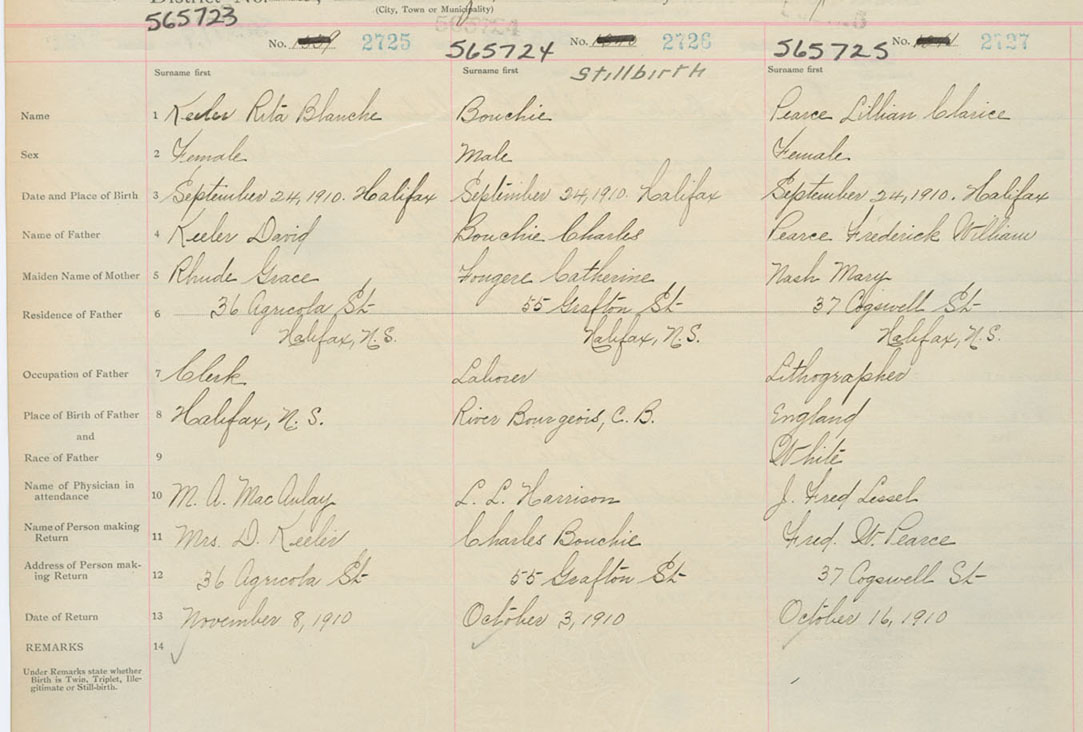 District No.
(City, Town or Municipality)
565723
No. 2725
565724
No. 2726
565725
No. 2727
Surname first
Surname first
Stillbirth
Surname first
Name 1 Keeler Rita Blanche Bouchie Pearce Lillian Clarice
Sex 2 Female Male Female
Date and Place of Birth 3 September 24, 1910. Halifax September 24, 1910. Halifax September 24, 1910. Halifax
Name of Father 4 Keeler David Bouchie Charles Pearce Frederick William
Maiden Name of Mother 5 Rhude Grace Fougere Catherine Nash Mary
Residence of Father 6 36 Agricola St 55 Grafton St 37 Cogswell St
Halifax, N.S. Halifax, N.S. Halifax, N.S.
Occupation of Father 7 Clerk Laborer Lithographer
Place of Birth of Father 8 Halifax, N.S. River Bourgeois, C.B. England
and
Race of Father 9 White
Name of Physician in attendance 10 M. A. MacAulay L. L. Harrison J. Fred Lessel
Name of Person making Return 11 Mrs. D. Keeler Charles Bouchie Fred. W. Pearce
Address of Person mak-ing Return 12 36 Agricola St 55 Grafton St 37 Cogswell St
Date of Return 13 November 8, 1910 October 3, 1910 October 16, 1910
REMARKS 14
Under Remarks state whether
Birth is Twin, Triplet, Ille-
gitimate or Still-birth.